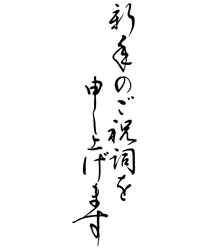 新年のご祝詞を
申し上げます